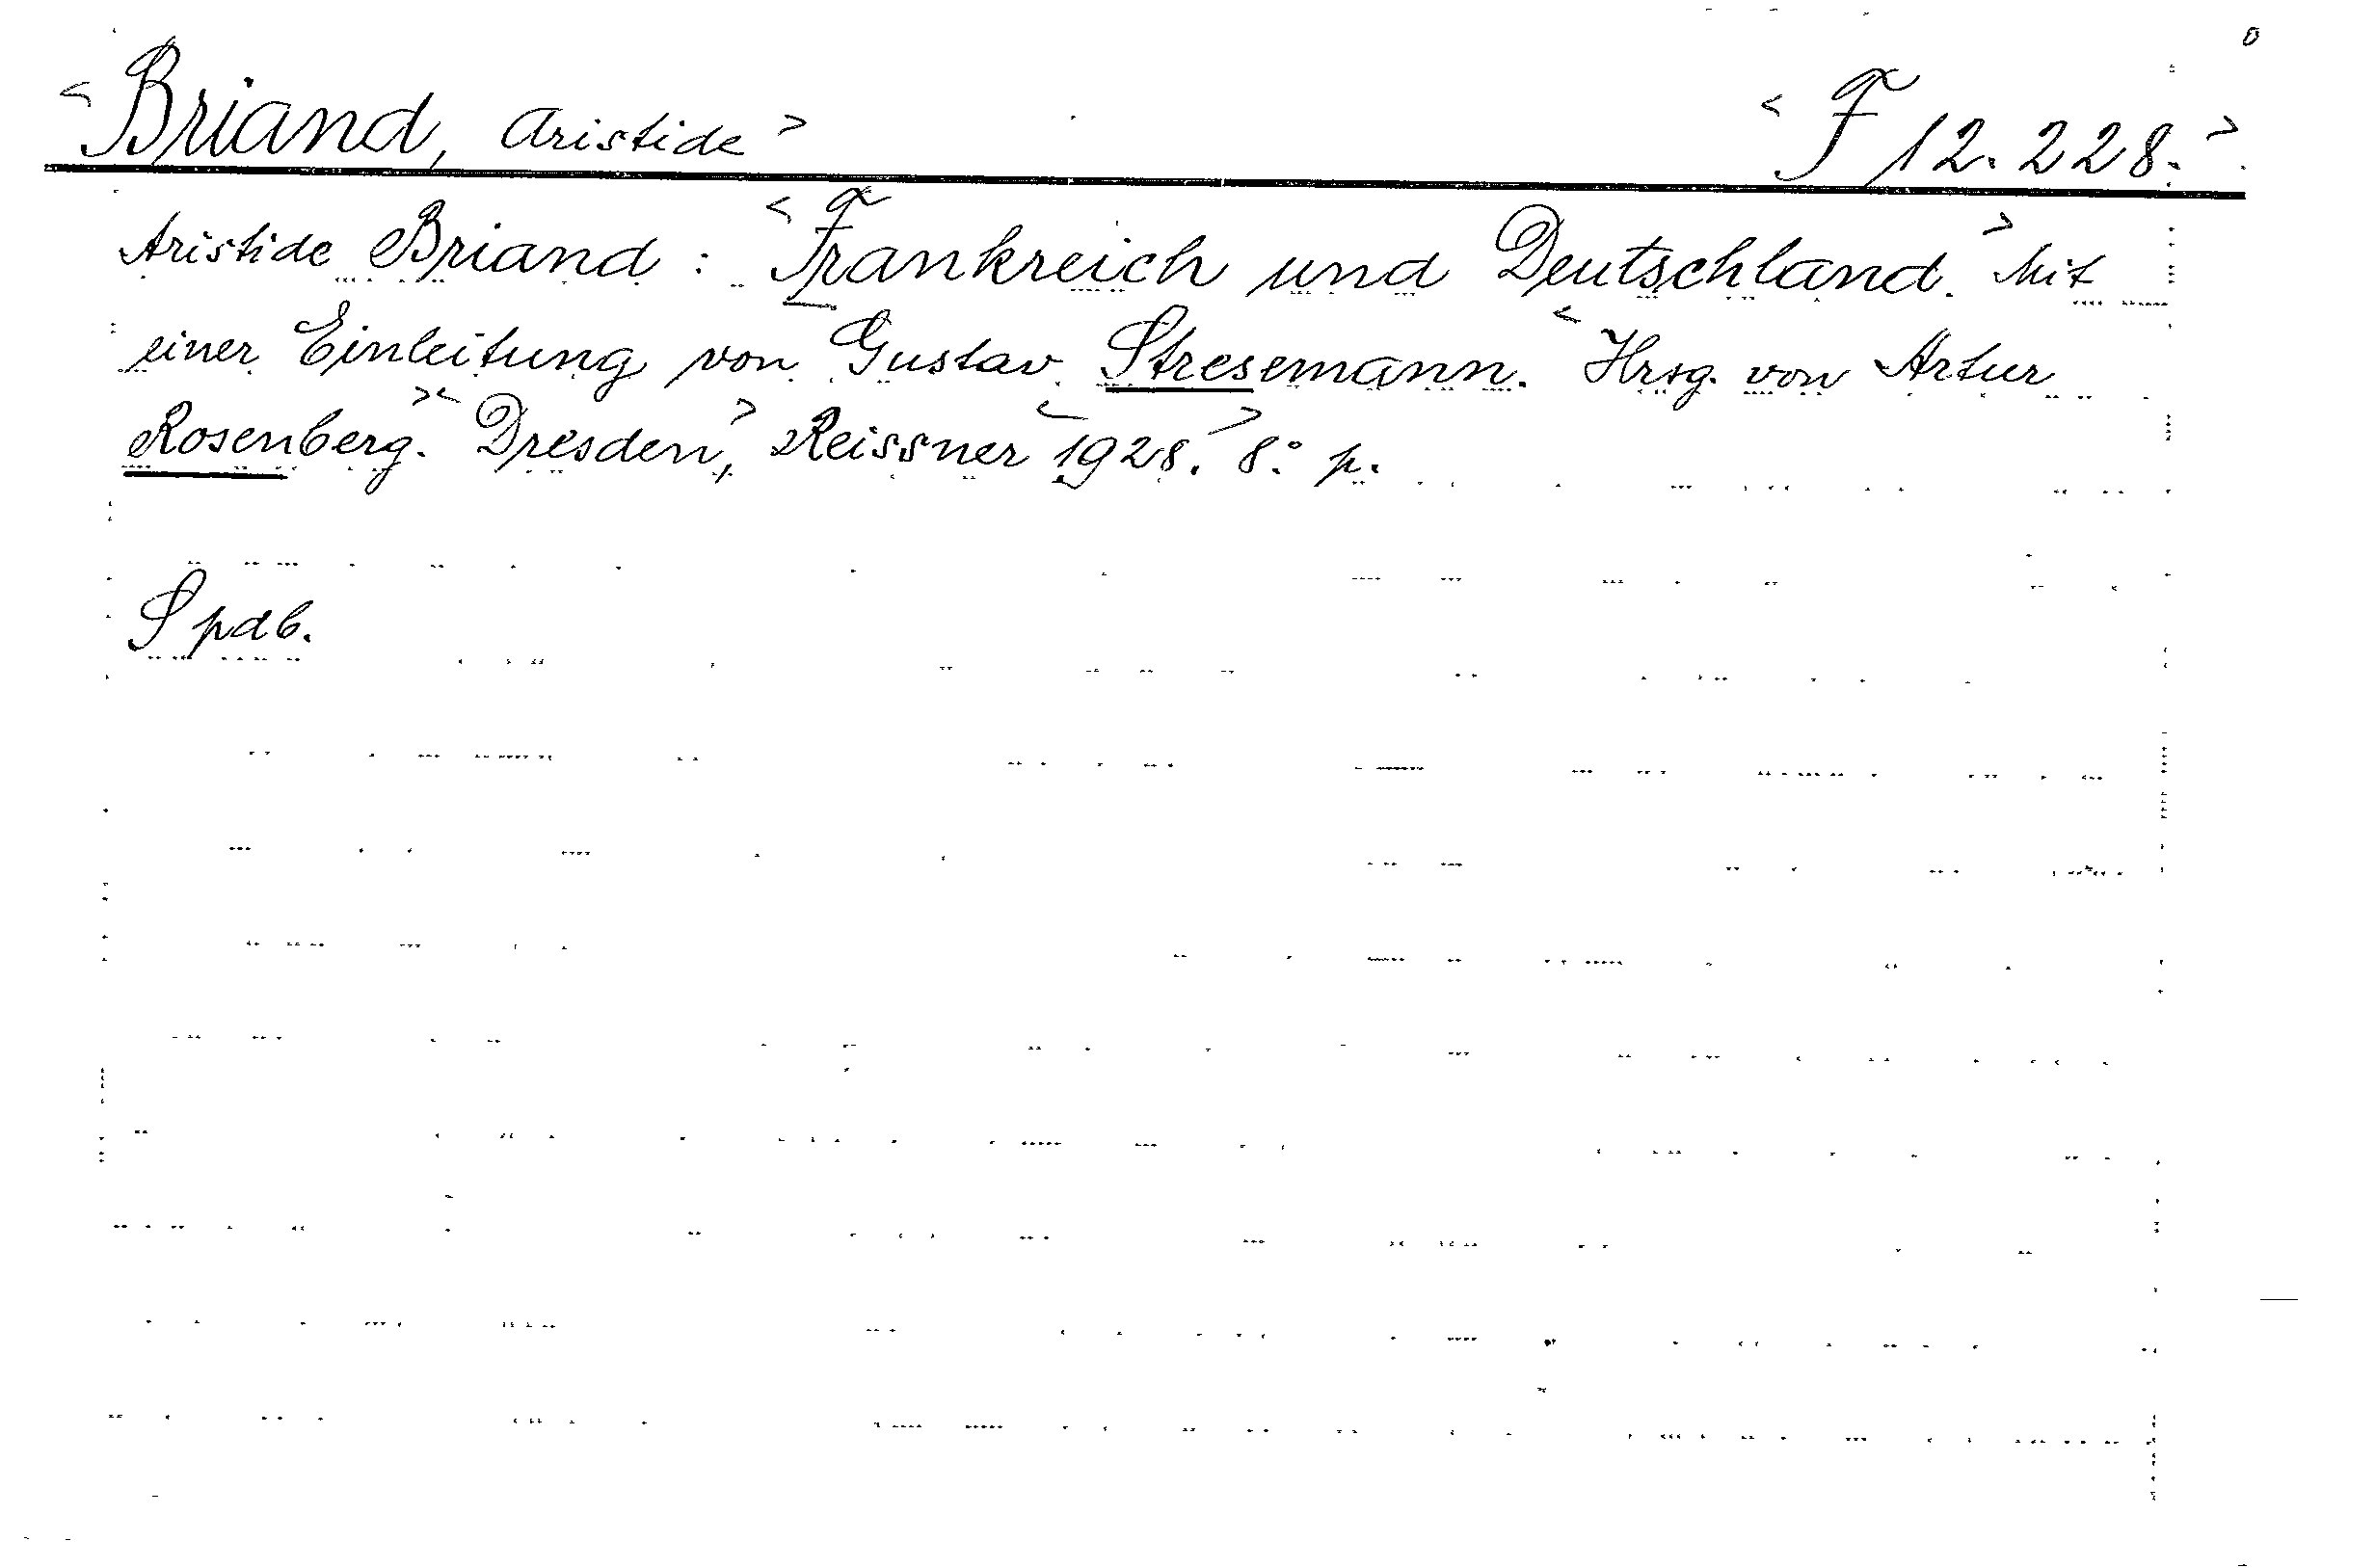 <Briand, Aristide> <F 12.228.>
Aristide Briand: <Frankreich und Deutschland.> Mit
einer Einleitung von Gustav Stresemann. <Hrsg. von Artur
Rosenberg.> <Dresden,> Reissner <1928.> 8° p.
S pdb.